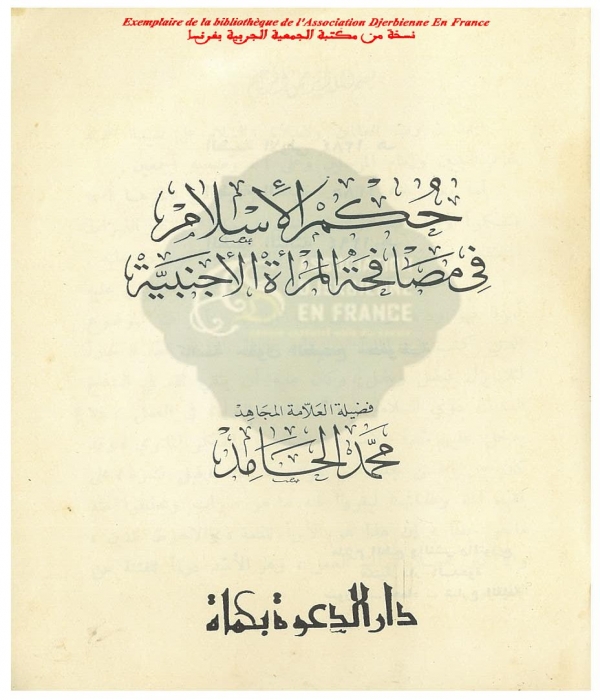 Exemplaire de la bibliothèque de l'Association Djerbienne En France
نسخة من مكتبة الجمعية الجربية بفرنسا
حُكم الإسلام
في مصافحة المرأة الأجنبية
EN FRANCE
فضيلة العلامة المجاهد
محمد الحامد
دار الدعوة بحماة